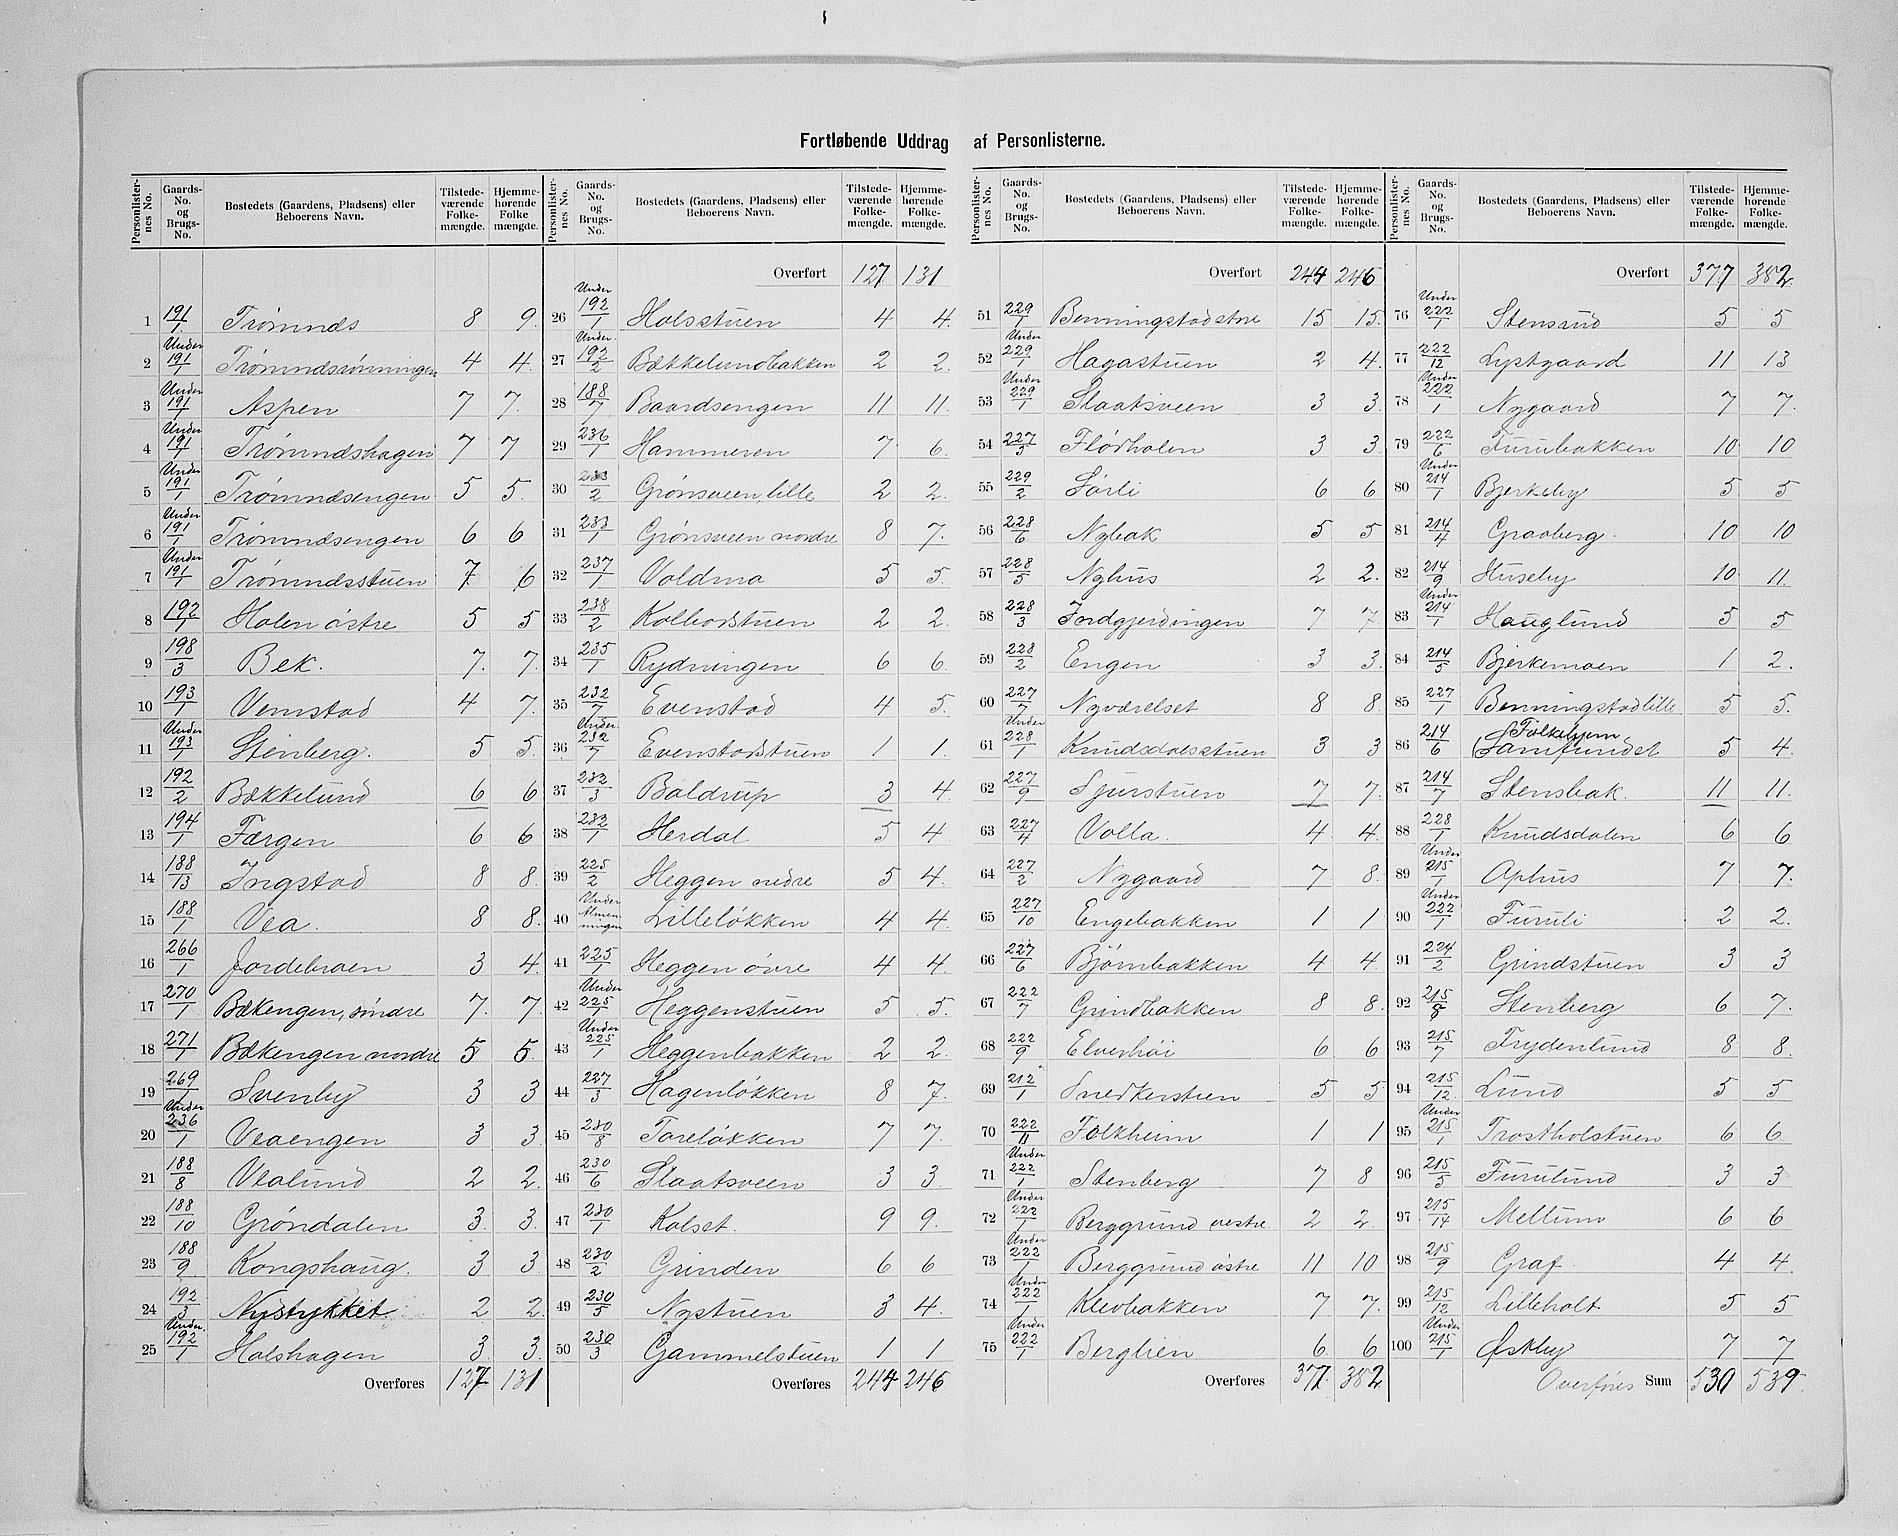 Fortløbende Uddrag af Personlisterne.
Personlister-nes No. Gaards-No. og Brugs-No. Bostedets (Gaardens, Pladsens) eller Beboerens Navn. Tilstede-værende Folke-mængde. Hjemme-hørende Folke mængde.
1 191/1 Trømnds 8 9.
2 Under 191/1 Trømndsrønningen 4 4.
3 Under 191/1 Aspen 7 7.
4 Under 191/1 Trømndshagen 7 7
5 Under 191/1 Trømndsengen 5 5.
6 Under 191/1 Trømndsengen 6 6
7 Under 191/1 Trømndsstuen 7 6
8 192/1 Holen østre 5 5
9 198/3 Bek. 7. 7.
10 193/1 Vemstad 4 7.
11 Under 193/1 Stenberg. 5 5.
12 192/2 Bækkelund 6 6
13 194/1 Færgen 6 6
14 188/13 Ingstad 8 8.
15 188/1 Vea. 8 8.
16 266/1 Jordebraen 3 4.
17 270/1 Bækengen, søndre 7. 7.
18 271/1 Bækengen nordre 5 5.
19 269/1 Svenby 3 3
20 Under 236/1 Veaengen 3 3.
21 188/8 Vealund 2 2.
22 188/10 Grøndalen 3. 3.
23 188/9 Kongshaug. 3 3.
24 192/3 Nystykket 2 2.
25 Under 192/1 Holshagen 3 3.
Overføres 127 131
Personlister-nes No. Gaards-No. og Brugs-No. Bostedets (Gaardens, Pladsens) eller Beboerens Navn. Tilstede-værende Folke-mængde. Hjemme-hørende Folke-mængde.
Overført 127 131
26 Under 192/1 Holsstuen 4 4.
27 Under 192/2 Bækkelundbakken 2 2.
28 188/7 Baardsengen 11 11.
29 236/1 Hammeren 7 6.
30 233/2 Grønsveen, lille 2 2.
31 233/1 Grønsveen nordre 8 7.
32 237/1 Voldmo 5 5.
33 238/2 Kolbotstuen 2 2.
34 235/1 Rydningen 6 6.
35 232/7 Evenstad 4 5.
36 Under 232/7 Evenstadstuen 1 1.
37 232/3 Baldrup 3 4.
38 232/1 Herdal 5 4
39 225/2 Heggen nedre 5 4.
40 Under Almenningen Lilleløkken 4 4
41 225/1 Heggen øvre 4 4
42 Under 225/1 Heggenstuen 5 5.
43 Under 225/1 Heggenbakken 2 2.
44 227/3 Hagenløkken 8 7.
45 230/8 Toreløkken 7 7.
46 230/6 Slaatsveen 3 3.
47 230/1 Kolset. 9 9.
48 230/2 Grinden 6 6
49 230/5 Nystuen 3 4.
50 230/3 Gammelstuen 1 1
Overføres 244 246
Personlister-nes No. Gaards-No. og Brugs-No. Bostedets (Gaardens, Pladsens) eller Beboerens Navn. Tilstede-værende Folke-mængde. Hjemme-hørende Folke-mængde.
Overført 244 246
51 229/1 Benningstad 15 15.
52 Under 229/1 Hagastuen 2 4.
53 Under 229/1 Slaatsveen 3 3.
54 227/5 Flødholen 3 3.
55 229/2 Sørli 6 6
56 228/6 Nybak 5 5
57 228/5 Nyhus 2 2.
58 228/3 Jordgjerdingen 7 7.
59 228/2 Engen 3 3.
60 227/7 Nyværelset 8 8.
61 Under 228/1 Knudsdalsstuen 3 3
62 227/9 Sjurstuen 7 7.
63 227/4 Volla. 4 4.
64 227/2 Nygaard 7 8.
65 227/10 Engebakken 1 1
66 227/6 Bjørnbakken 4 4.
67 222/7 Grindbakken 8 8.
68 222/9 Elverhøi 6 6
69 212/1 Snedkerstuen 5 5
70 222/11 Folkheim 1 1
71 Under 222/1 Stenberg 7 8
72 Under 222/1 Berggrund vestre 2 2.
73 Under 222/1 Berggrund østre 11 10
74 Under 222/1 Klevbakken 7 7.
75 Under 222/1 Berglien 6. 6
Overføres 377. 382.
Personlister-nes No. Gaards-No. og Brugs-No. Bostedets (Gaardens, Pladsens) eller Beboerens Navn. Tilstede-værende Folke-mængde. Hjemme-hørende Folke-mængde.
Overført 377 382.
76 Under 222/1 Stensrud 5 5
77 222/12 Lystgaard 11 13
78 Under 222/1 Nygaard 7 7.
79 222/6 Furubakken 10 10
80 Under 214/1 Bjerkeby 5 5
81 214/4 Graaberg. 10 10
82 214/9 Huseby 10 11
83 Under 214/1 Hauglund 5 5
84 214/5 Bjerkemoen 1 2.
85 227/1 Benningstad lille 5 5.
86 214/6 Folkehjem (Samfundet 5 4.
87 214/7 Stensbak. 11 11.
88 228/1 Knudsdalen 6 6
89 Under 215/1 Ophus 7 7.
90 Under 222/1 Furuli 2 2.
91 224/2 Grindstuen 3 3
92 215/8 Stenberg 6 7.
93 215/7 Frydenlund 8 8.
94 215/12 Lund 5 5
95 Under 215/1 Trostholstuen 6 6
96 215/5 Furulund 3 3
97 215/14 Mellum 6 6
98 215/9 Graf. 4 4.
99 215/12 Lilleholt 5 5
100 Under 215/1 Østby 7 7
Overføres Sum 530 539.